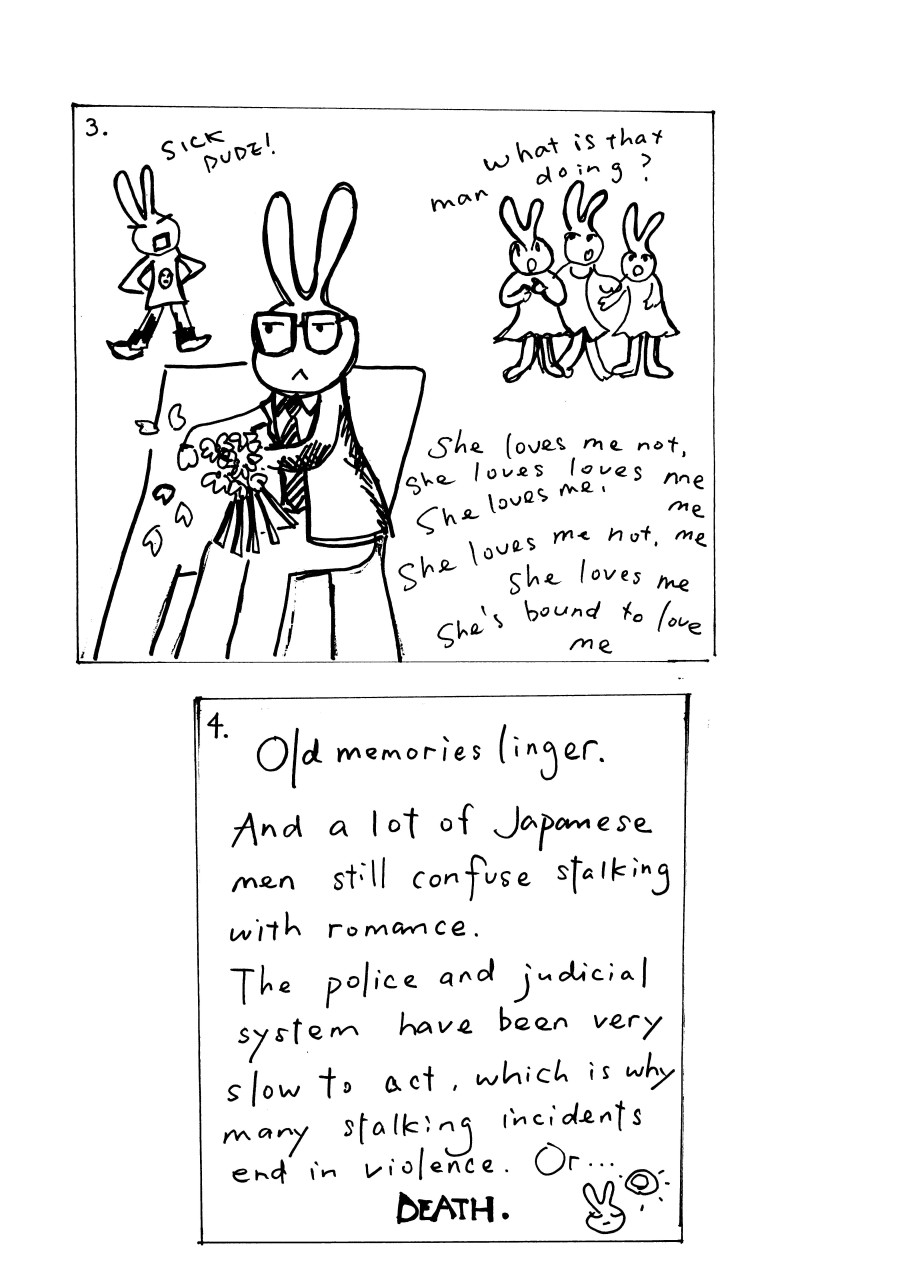 3.
SICK
DUDE!
what is that
man doing?
She loves me not,
She loves loves me
She loves me. me
She loves me not, me
She loves me
She's bound to love
me
4.
Old memories linger.
And a lot of Japanese
men still confuse stalking
with romance.
The police and judicial
system have been very
slow to act, which is why
many stalking incidents
end in violence. Or...
DEATH.